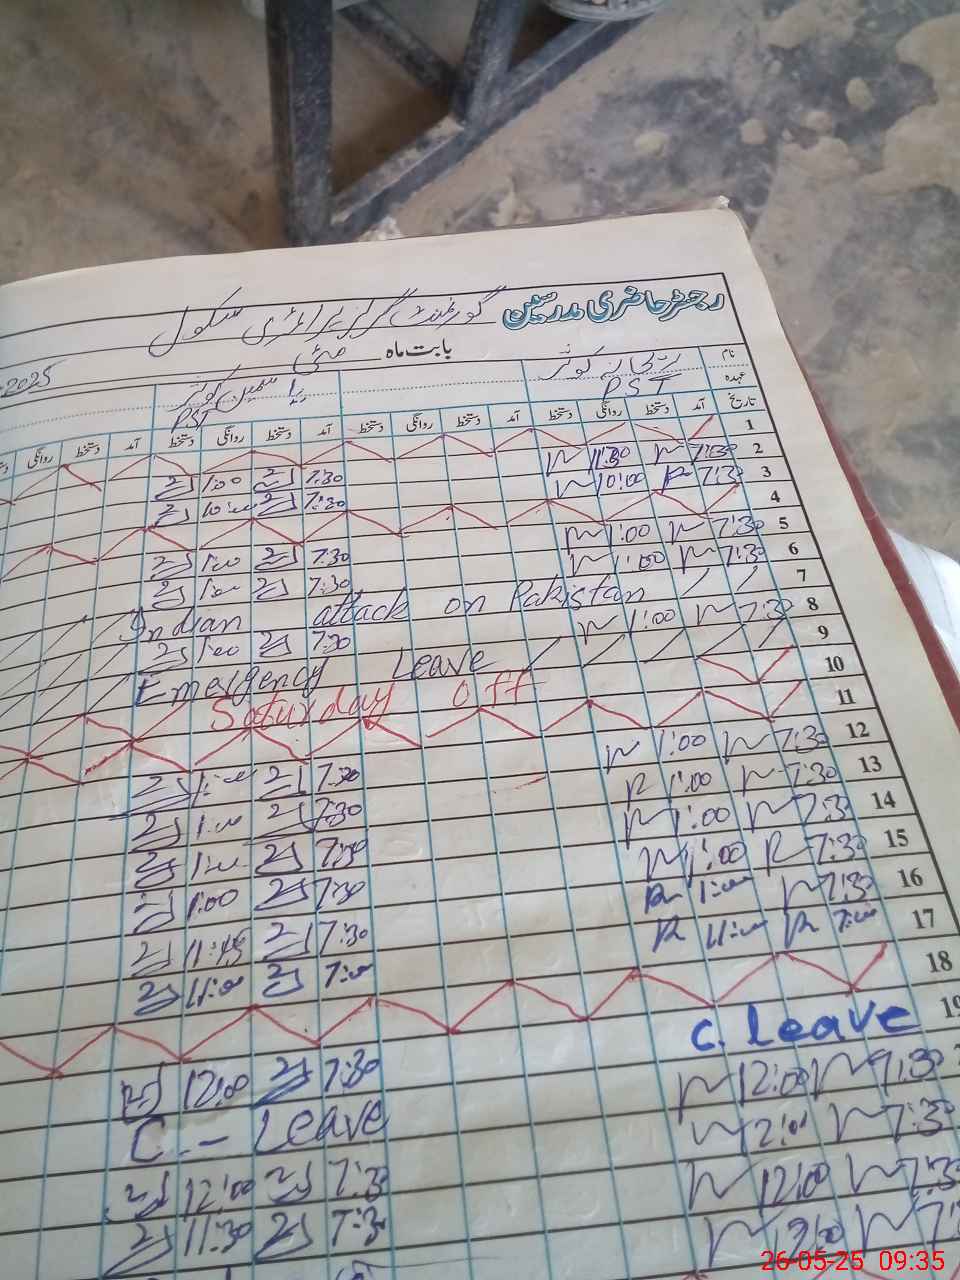 رجسٹر حاضری مدرسین گورنمنٹ گرلز پرائمری سکول
بابت ماہ مئی 2025
نام ریحانہ کوثر یاسمین کوثر
عہدہ PST PST
تاریخ آمد دستخط روانگی دستخط آمد دستخط روانگی دستخط آمد دستخط روانگی دستخط آمد دستخط روانگی
1
2 7:30 11:30 7:30 1:00
3 7:30 10:00 7:30 10:00
4
5 7:30 1:00 7:30 1:00
6 7:30 1:00 7:30 1:00
7 Indian attack on Pakistan
8 7:30 1:00 7:30 1:00
9 Emergency Leave
10 Saturday off
11
12 7:30 1:00 7:30 1:00
13 7:30 1:00 7:30 1:00
14 7:30 1:00 7:30 1:00
15 7:30 1:00 7:30 1:00
16 7:30 1:00 7:30 11:45
17 7:00 11:00 7:00 11:00
18
19 C. Leave 7:30 12:00
7:30 12:00 C - Leave
7:30 12:00 7:30
7:30 12:00 7:30 11:30
26-05-25 09:35